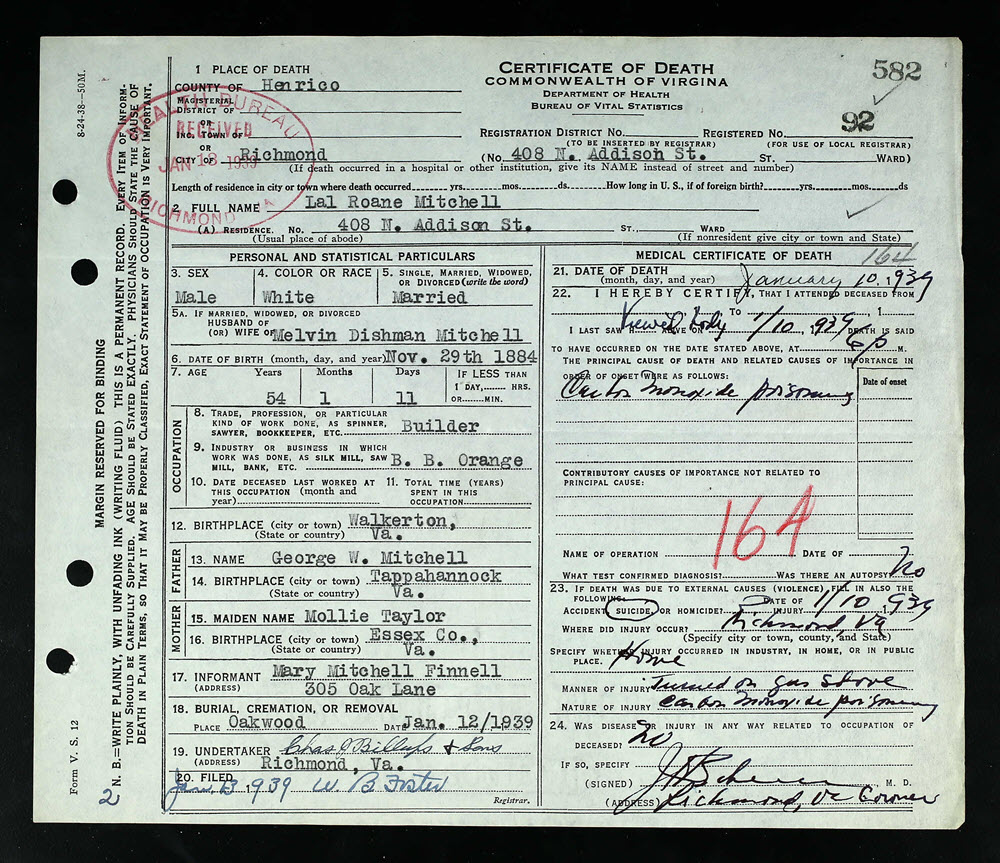 CERTIFICATE OF DEATH
COMMONWEALTH OF VIRGINIA
DEPARTMENT OF HEALTH
BUREAU OF VITAL STATISTICS
582
92
1 PLACE OF DEATH
COUNTY OF Henrico
MAGISTERIAL
DISTRICT OF
OR
INC. TOWN OF
OR
CITY OF Richmond
HEALTH BUREAU
RECEIVED
JAN 13 1939
RICHMOND VA
REGISTRATION DISTRICT NO. REGISTERED NO.
(TO BE INSERTED BY REGISTRAR) (FOR USE OF LOCAL REGISTRAR)
(No. 408 N. Addison St. ST. WARD)
(If death occurred in a hospital or other institution, give its NAME instead of street and number)
Length of residence in city or town where death occurred yrs. mos. ds. How long in U. S., if of foreign birth? yrs. mos. ds
2 FULL NAME Lal Roane Mitchell
(A) RESIDENCE. No. 408 N. Addison St. ST., WARD
(Usual place of abode) (If nonresident give city or town and State)
PERSONAL AND STATISTICAL PARTICULARS
3. SEX 4. COLOR OR RACE 5. SINGLE, MARRIED, WIDOWED,
OR DIVORCED (write the word)
Male White Married
5A. IF MARRIED, WIDOWED, OR DIVORCED
HUSBAND OF
(OR) WIFE OF Melvin Dishman Mitchell
6. DATE OF BIRTH (month, day, and year) Nov. 29th 1884
7. AGE Years Months Days IF LESS THAN
1 DAY, HRS.
54 1 11 OR MIN.
OCCUPATION
8. TRADE, PROFESSION, OR PARTICULAR
KIND OF WORK DONE, AS SPINNER,
SAWYER, BOOKKEEPER, ETC. Builder
9. INDUSTRY OR BUSINESS IN WHICH
WORK WAS DONE, AS SILK MILL, SAW
MILL, BANK, ETC. B. B. Orange
10. DATE DECEASED LAST WORKED AT 11. TOTAL TIME (YEARS)
THIS OCCUPATION (month and SPENT IN THIS
year) OCCUPATION
12. BIRTHPLACE (city or town) Walkerton,
(State or country) Va.
FATHER
13. NAME George W. Mitchell
14. BIRTHPLACE (city or town) Tappahannock
(State or country) Va.
MOTHER
15. MAIDEN NAME Mollie Taylor
16. BIRTHPLACE (city or town) Essex Co.,
(State or country) Va.
17. INFORMANT Mary Mitchell Finnell
(ADDRESS) 305 Oak Lane
18. BURIAL, CREMATION, OR REMOVAL
PLACE Oakwood DATE Jan. 12/1939
19. UNDERTAKER Chas J Billups & Sons
(ADDRESS) Richmond, Va.
20. FILED Jan 13 1939 W. B Foster
Registrar.
MEDICAL CERTIFICATE OF DEATH
164
21. DATE OF DEATH
(month, day, and year) January 10, 1939
22. I HEREBY CERTIFY, THAT I ATTENDED DECEASED FROM
TO , 1
I LAST SAW H ALIVE ON Viewed body 1/10 1939 DEATH IS SAID
TO HAVE OCCURRED ON THE DATE STATED ABOVE, AT 6 P M.
THE PRINCIPAL CAUSE OF DEATH AND RELATED CAUSES OF IMPORTANCE IN
ORDER OF ONSET WERE AS FOLLOWS: Date of onset
Carbon Monoxide poisoning
CONTRIBUTORY CAUSES OF IMPORTANCE NOT RELATED TO
PRINCIPAL CAUSE:
164
NAME OF OPERATION DATE OF
WHAT TEST CONFIRMED DIAGNOSIS? WAS THERE AN AUTOPSY? No
23. IF DEATH WAS DUE TO EXTERNAL CAUSES (VIOLENCE), FILL IN ALSO THE
FOLLOWING:
ACCIDENT, SUICIDE, OR HOMICIDE? DATE OF INJURY 1/10 1939
WHERE DID INJURY OCCUR? Richmond Va
(Specify city or town, county, and State)
SPECIFY WHETHER INJURY OCCURRED IN INDUSTRY, IN HOME, OR IN PUBLIC
PLACE. Home
MANNER OF INJURY Turned on gas stove
NATURE OF INJURY Carbon Monoxide poisoning
24. WAS DISEASE OR INJURY IN ANY WAY RELATED TO OCCUPATION OF
DECEASED? No
IF SO, SPECIFY
(SIGNED) M. D.
(ADDRESS) Richmond, Va Coroner
8-24-38—50M.
MARGIN RESERVED FOR BINDING
N. B.—WRITE PLAINLY, WITH UNFADING INK (WRITING FLUID) THIS IS A PERMANENT RECORD. EVERY ITEM OF INFORMA-
TION SHOULD BE CAREFULLY SUPPLIED. AGE SHOULD BE STATED EXACTLY. PHYSICIANS SHOULD STATE THE CAUSE OF
DEATH IN PLAIN TERMS, SO THAT IT MAY BE PROPERLY CLASSIFIED, EXACT STATEMENT OF OCCUPATION IS VERY IMPORTANT.
Form V. S. 12
2